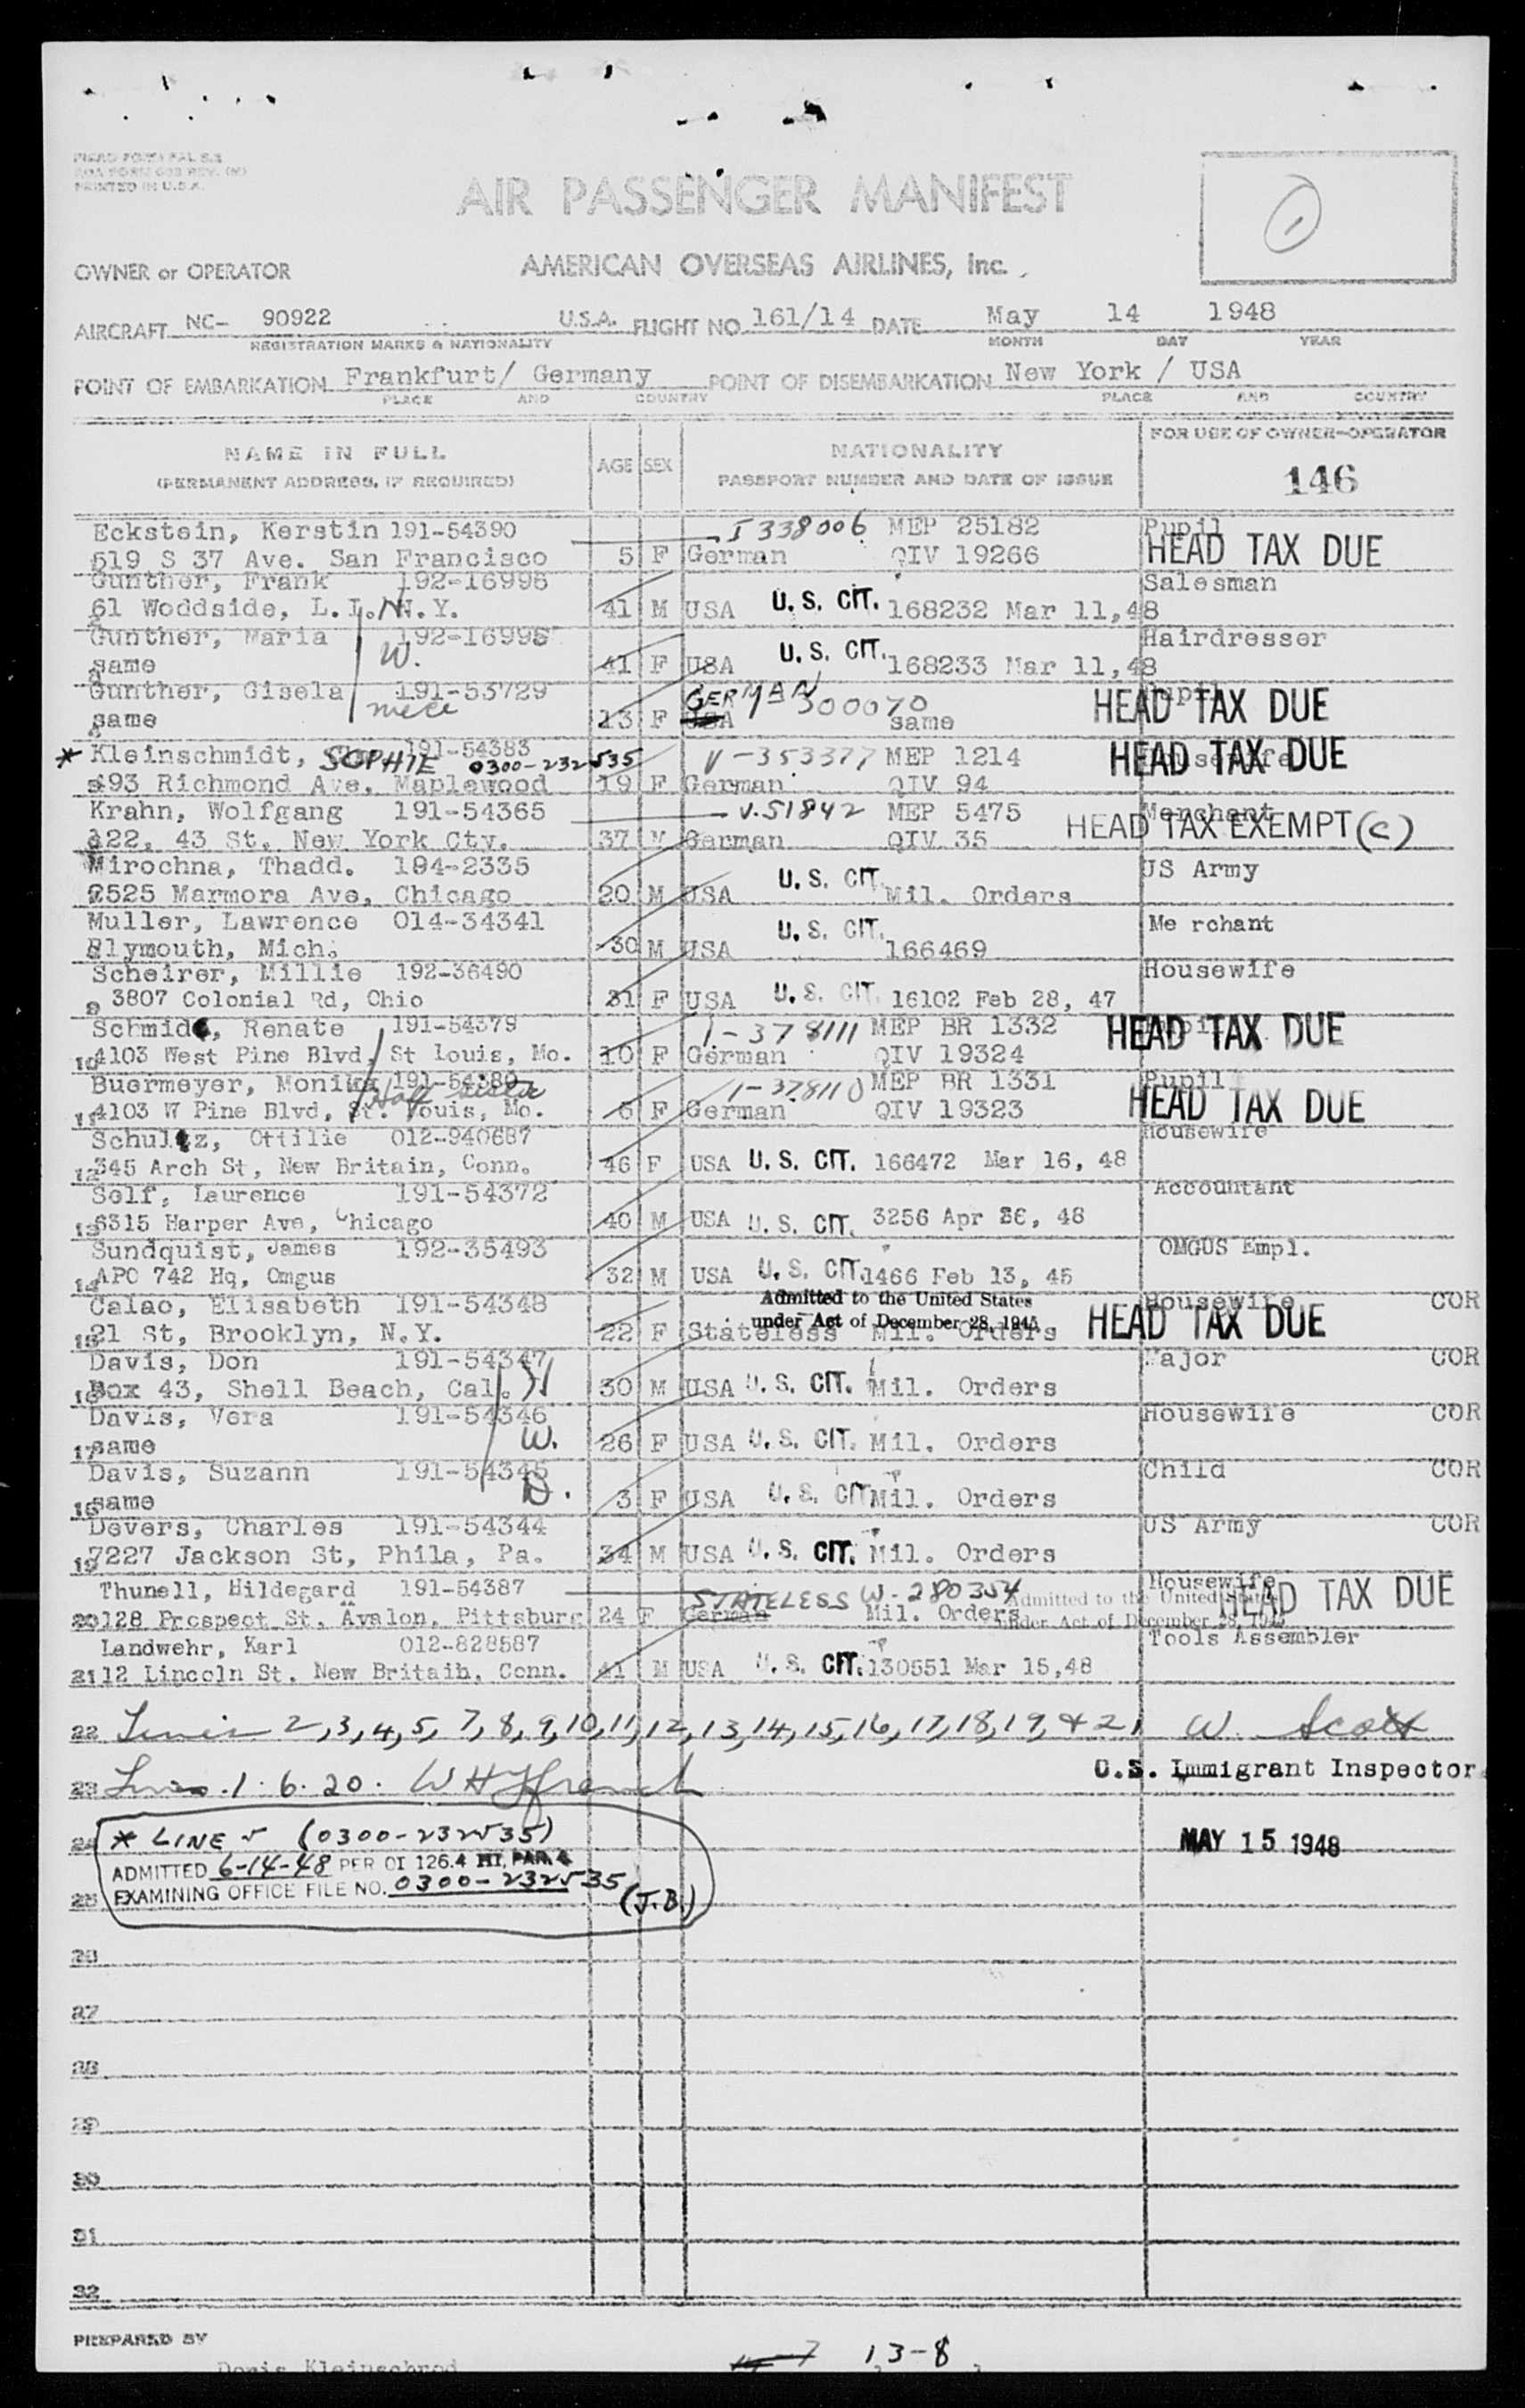 PRINTED IN U.S.A.
AIR PASSENGER MANIFEST
OWNER or OPERATOR AMERICAN OVERSEAS AIRLINES, Inc.
AIRCRAFT NC- 90922 U.S.A. FLIGHT NO. 161/14 DATE May 14 1948
REGISTRATION MARKS & NATIONALITY MONTH DAY YEAR
POINT OF EMBARKATION Frankfurt/ Germany POINT OF DISEMBARKATION New York / USA
PLACE AND COUNTRY PLACE AND COUNTRY
NAME IN FULL AGE SEX NATIONALITY FOR USE OF OWNER-OPERATOR
(PERMANENT ADDRESS, IF REQUIRED) PASSPORT NUMBER AND DATE OF ISSUE 146
Eckstein, Kerstin 191-54390 I 338006 MEP 25182 Pupil
619 S 37 Ave. San Francisco 5 F German QIV 19266 HEAD TAX DUE
Gunther, Frank 192-16996 Salesman
61 Woddside, L.I. N.Y. 41 M USA U. S. CIT. 168232 Mar 11,48
Gunther, Maria 192-16995 Hairdresser
same W. 41 F USA U. S. CIT. 168233 Mar 11,48
Gunther, Gisela 191-53729 GERMAN 300070 Pupil HEAD TAX DUE
same niece 13 F USA same
* Kleinschmidt, SOPHIE 191-54383 0300-232535 V-353377 MEP 1214 Housewife HEAD TAX DUE
493 Richmond Ave. Maplewood 19 F German QIV 94
Krahn, Wolfgang 191-54365 V.51842 MEP 5475 Merchant
122, 43 St. New York Cty. 37 M German QIV 35 HEAD TAX EXEMPT (c)
Mirochna, Thadd. 194-2335 US Army
2525 Marmora Ave, Chicago 20 M USA U. S. CIT. Mil. Orders
Muller, Lawrence 014-34341 Me rchant
Plymouth, Mich. 30 M USA U. S. CIT. 166469
Scheirer, Millie 192-36490 Housewife
9 3807 Colonial Rd, Ohio 31 F USA U. S. CIT. 16102 Feb 28, 47
Schmidt, Renate 191-54379 I-378111 MEP BR 1332 HEAD TAX DUE
10 4103 West Pine Blvd, St Louis, Mo. 10 F German QIV 19324
Buermeyer, Monika 191-54380 Half sister I-378110 MEP BR 1331 Pupil
11 4103 W Pine Blvd, St. Louis, Mo. 6 F German QIV 19323 HEAD TAX DUE
Schultz, Ottilie 012-940687 Housewife
12 345 Arch St, New Britain, Conn. 46 F USA U. S. CIT. 166472 Mar 16, 48
Self, Laurence 191-54372 Accountant
13 6315 Harper Ave, Chicago 40 M USA U. S. CIT. 3256 Apr 26, 48
Sundquist, James 192-35493 OMGUS Empl.
14 APO 742 Hq, Omgus 32 M USA U. S. CIT. 1466 Feb 13, 45
Calao, Elisabeth 191-54348 Admitted to the United States Housewife COR
15 21 St, Brooklyn, N.Y. 22 F Stateless under Act of December 28, 1945 Mil. Orders HEAD TAX DUE
Davis, Don 191-54347 Major COR
16 Box 43, Shell Beach, Cal. H 30 M USA U. S. CIT. Mil. Orders
Davis, Vera 191-54346 Housewife COR
17 same W. 26 F USA U. S. CIT. Mil. Orders
Davis, Suzann 191-54345 Child COR
18 same D. 3 F USA U. S. CIT. Mil. Orders
Devers, Charles 191-54344 US Army COR
19 7227 Jackson St, Phila, Pa. 34 M USA U. S. CIT. Mil. Orders
Thunell, Hildegard 191-54387 STATELESS W-280354 Admitted to the United States Housewife HEAD TAX DUE
20 128 Prospect St. Avalon, Pittsburg 24 F German Mil. Orders under Act of December 28, 1945
Landwehr, Karl 012-828587 Tools Assembler
21 12 Lincoln St. New Britain, Conn. 41 M USA U. S. CIT. 130551 Mar 15,48
22 Lines 2,3,4,5,7,8,9,10,11,12,13,14,15,16,17,18,19,& 21 W. Scott
U.S. Immigrant Inspector
23 Lines 1. 6. 20.
24 * LINE 5 (0300-232535) MAY 15 1948
ADMITTED 6-14-48 PER OI 126.4 III, PAR. 4
25 EXAMINING OFFICE FILE NO. 0300-232535 (J.B.)
26
27
28
29
30
31
32
PREPARED BY
Doris Kleinschrod 13-8